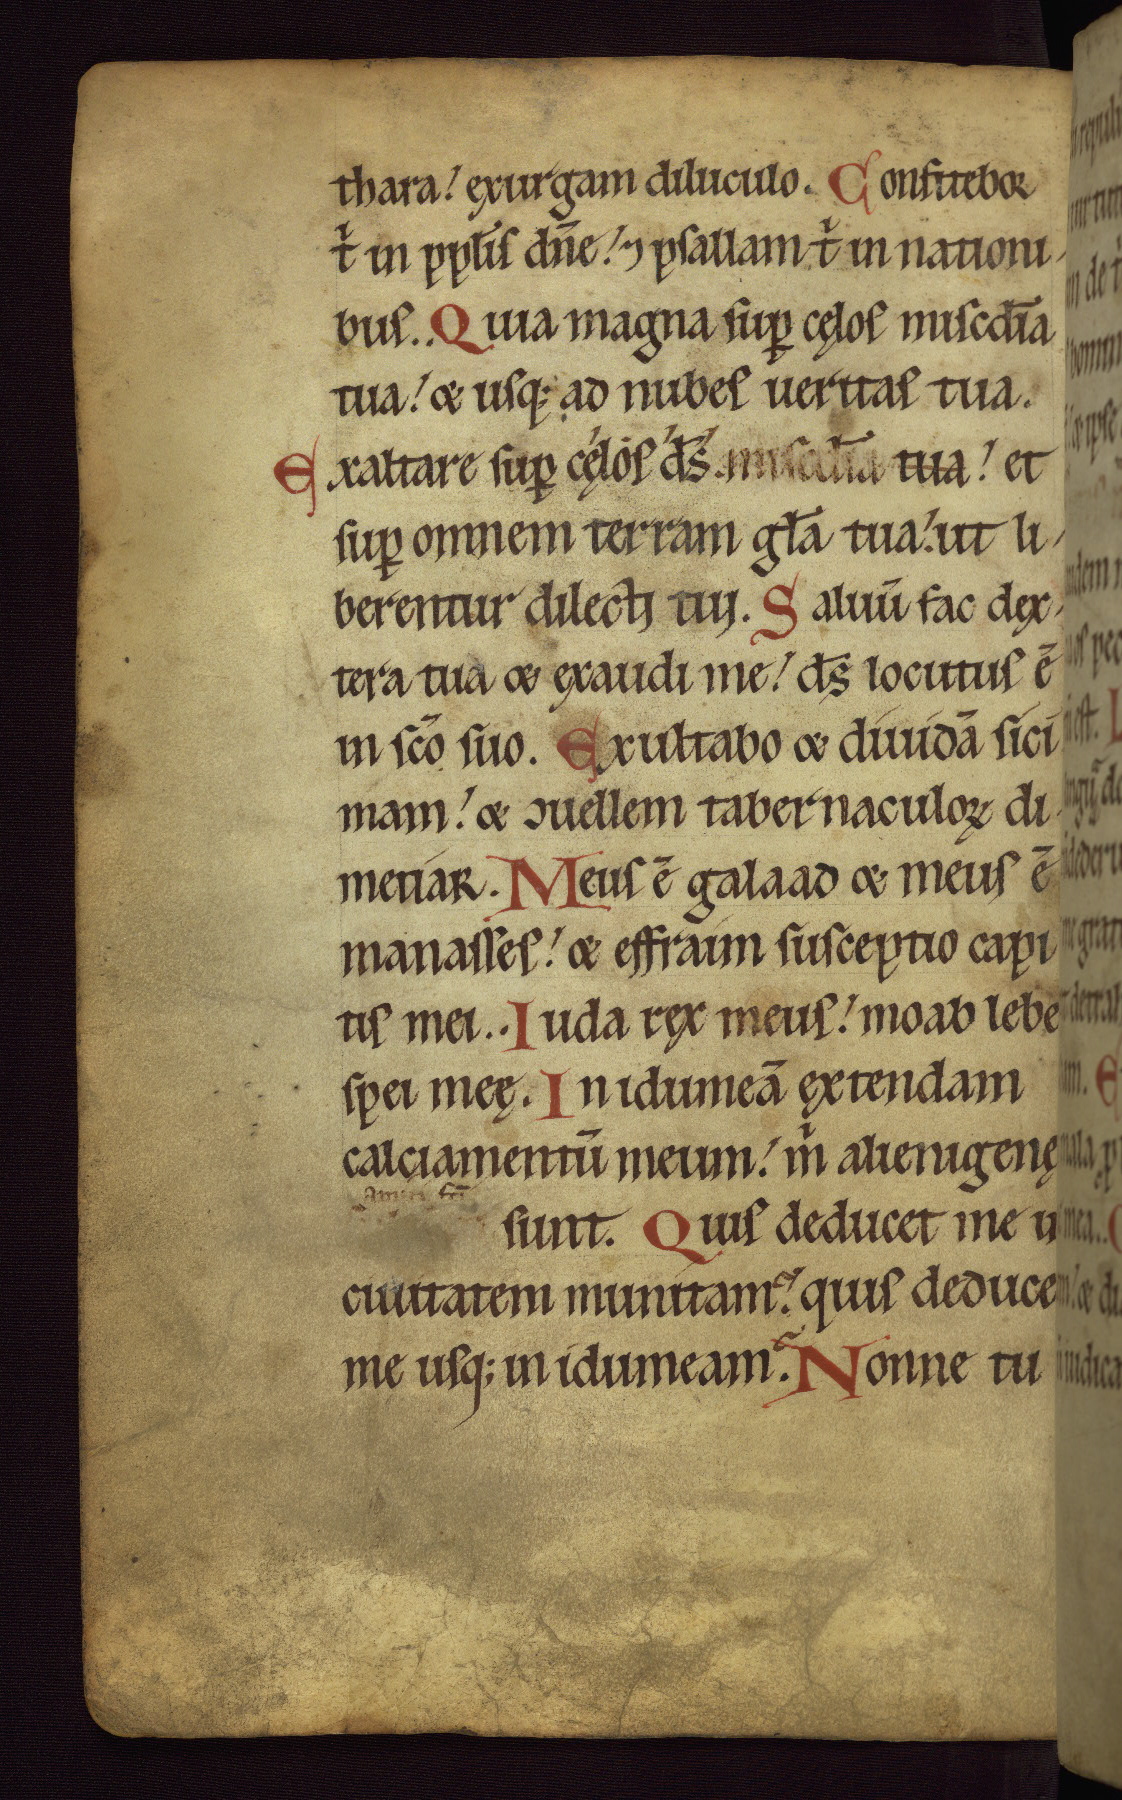 thara! exurgam diluculo. Confitebor
t̉ in ppl̄is dn̄e! ⁊ psallam t̉ in nationi-
bus.. Quia magna sup̱ cęlos miscd̄ia
tua! & usq; ad nubes ueritas tua.
Exaltare sup̱ cęlos d̄s. miscd̄ia tua! et
sup̱ omnem terram gl̄a tua! ut li-
berentur dilecti tui. Saluū fac dex-
tera tua & exaudi me! d̄s locutus ē
in sc̄o suo. Exultabo & diuidā sici
mam! & ɔuellem tabernaculoꝝ di-
metiar. Meus ē galaad & meus ē
manasses! & effraim susceptio capi
tis mei.. Iuda rex meus! moab lebe
spei meę. In idumeā extendam
calciamentū meum! m̉ alienigenę
sunt. Quis deducet me
ciuitatem munitam? quis deduce
me usq; in idumeam? Nonne tu